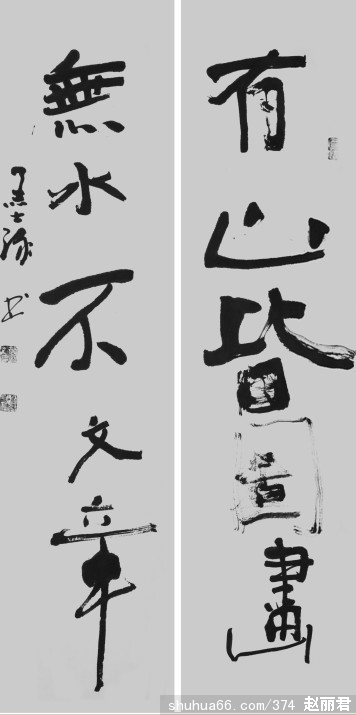 有山皆圖畫
無水不文章
shuhua66.com/374 赵丽君